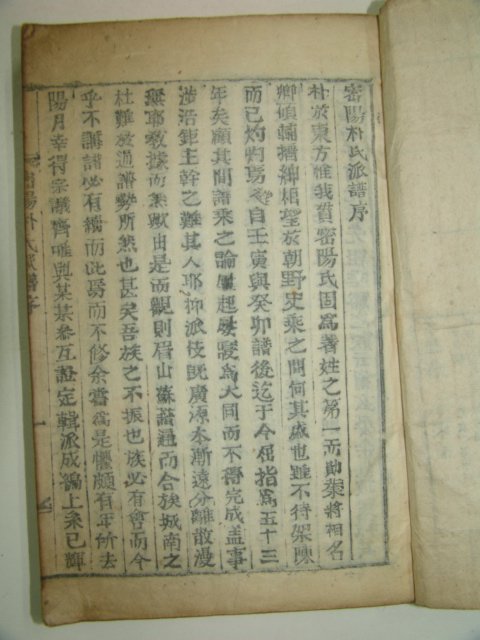 密陽朴氏派譜序
朴於東方惟我貫密陽氏固爲著姓之第一而勛業將相名
卿碩輔搢紳相望於朝野史乘之間何其盛也雖不待架陳
而已灼灼焉自壬寅與癸卯譜後迄于今屈指爲五十三
年矣顧其間譜系之論屢起屢寢爲大同而不得完成盖事
浩鉅主幹之難其人耶抑派伎旣廣源本漸遠分離散漫
無而然歟由是而觀則眉山蘇譜通而合族城南之
杜難於通譜勢所然也甚矣吾族之不振也族必有會而今
乎不講譜必有續而此焉而不修余嘗爲是懼頗有年所去
陽月幸得宗議齊唯與某某參互證定輯派成編上系已輝
密陽朴氏派譜序
一